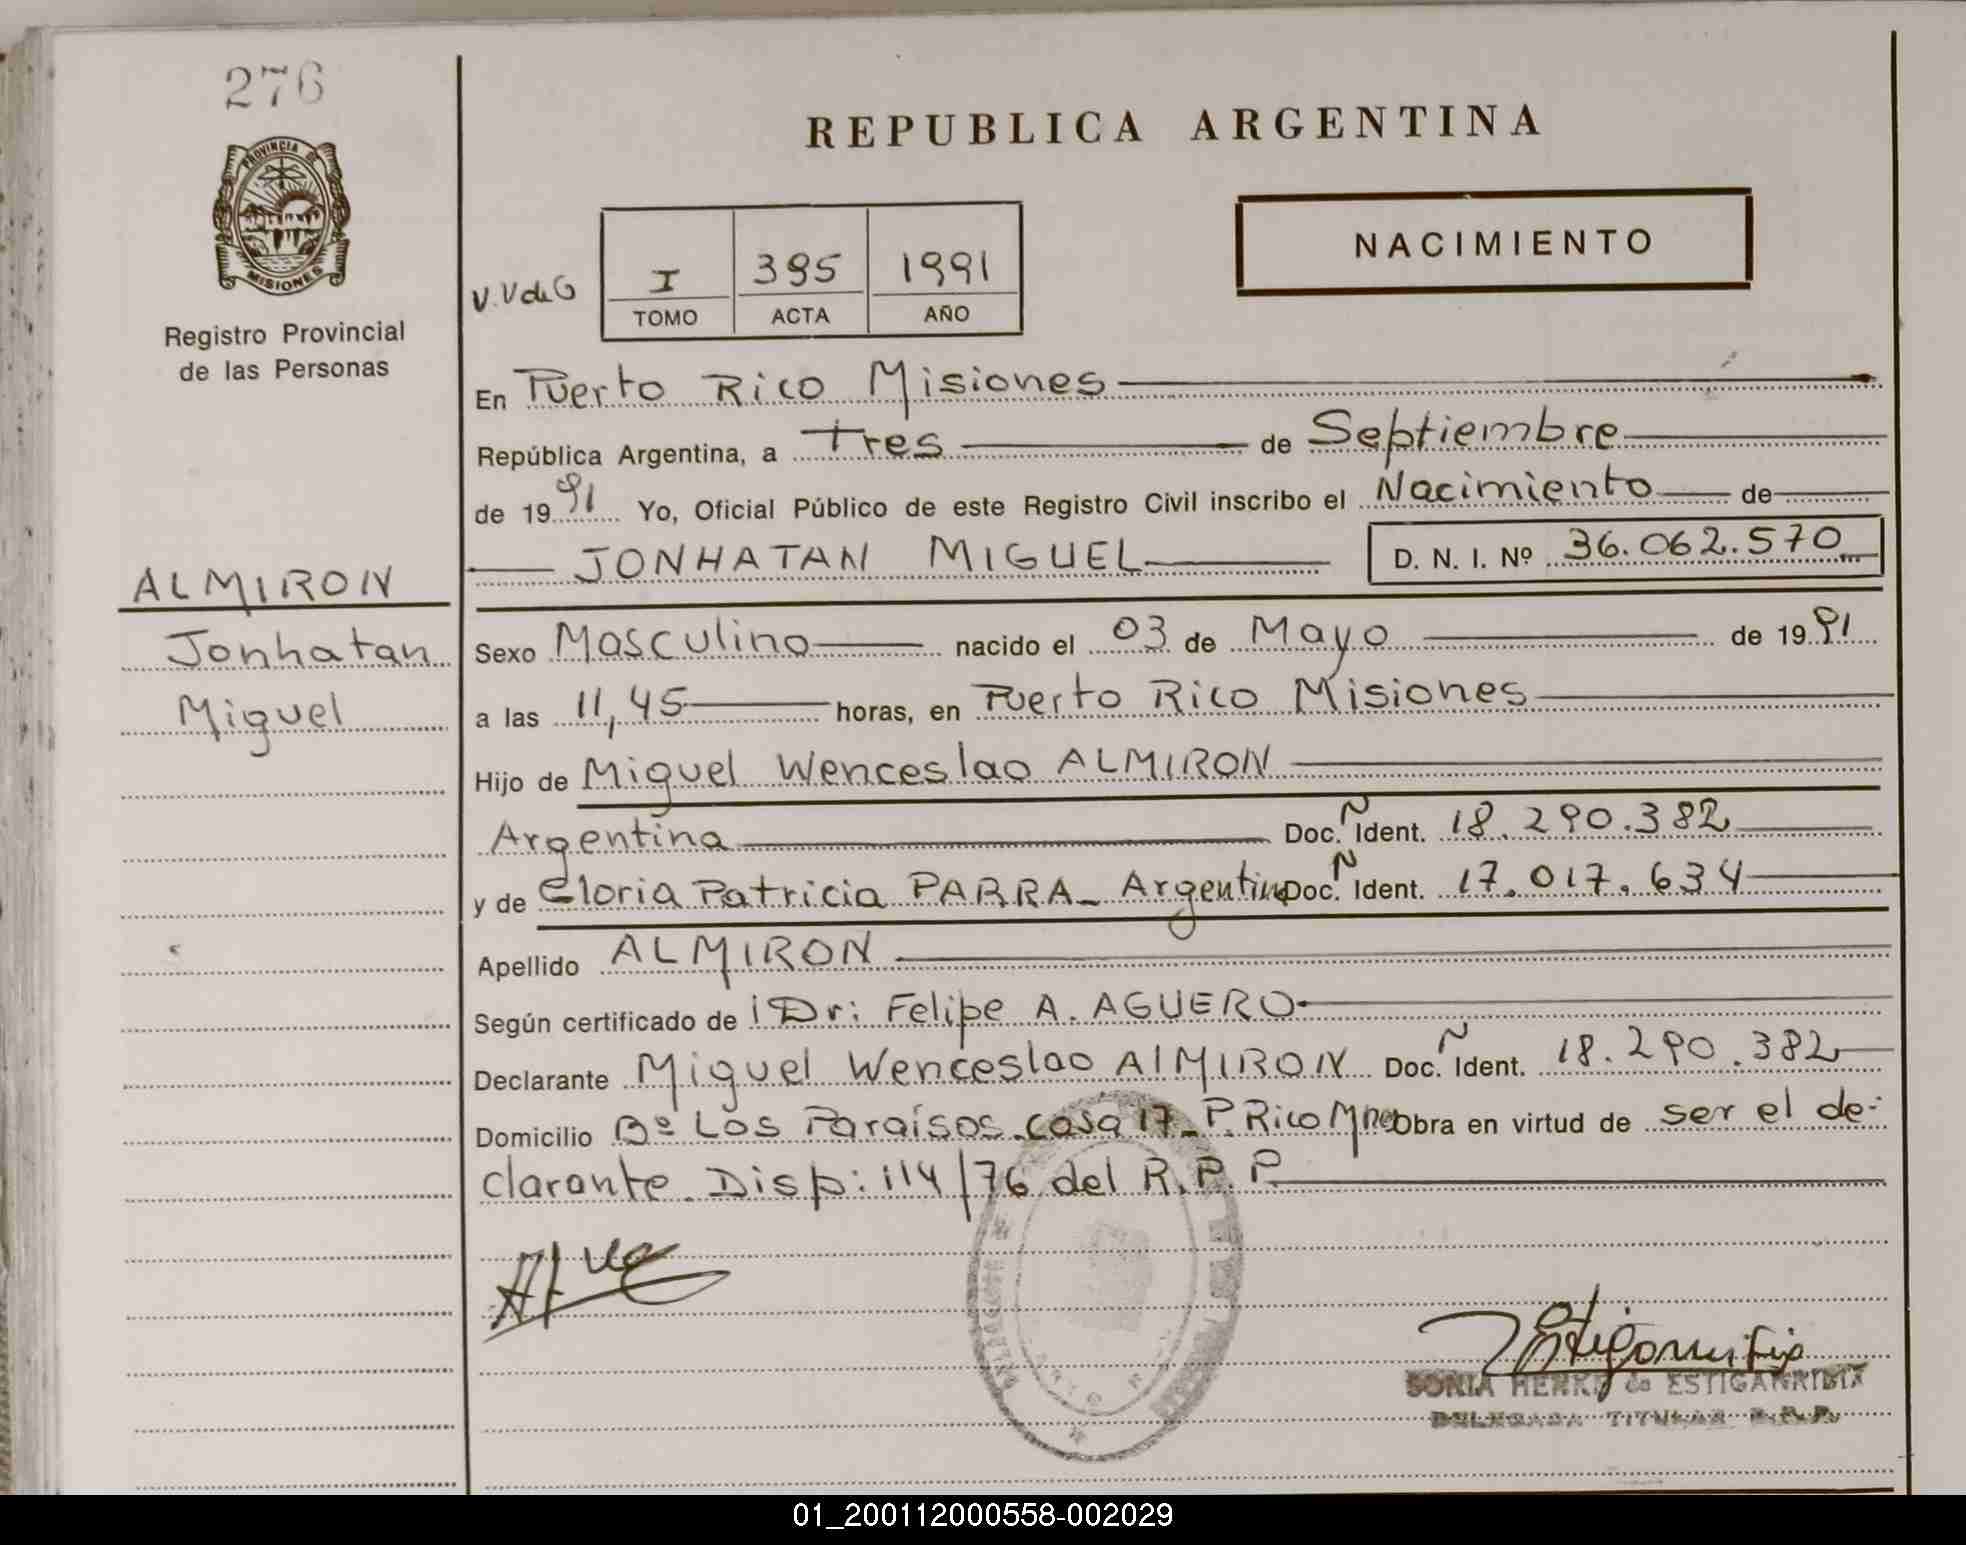 276
PROVINCIA DE
MISIONES
Registro Provincial
de las Personas
REPUBLICA ARGENTINA
NACIMIENTO
V.V de G
I 395 1991
TOMO ACTA AÑO
En Puerto Rico Misiones
República Argentina, a Tres de Septiembre
de 1991 Yo, Oficial Público de este Registro Civil inscribo el Nacimiento de
JONHATAN MIGUEL D. N. I. Nº 36.062.570
ALMIRON
Jonhatan
Miguel
Sexo Masculino nacido el 03 de Mayo de 1991
a las 11,45 horas, en Puerto Rico Misiones
Hijo de Miguel Wenceslao ALMIRON
Argentina Doc. Ñ Ident. 18.290.382
y de Gloria Patricia PARRA_ Argentina Doc. Ñ Ident. 17.017.634
Apellido ALMIRON
Según certificado de Dr: Felipe A. AGUERO
Declarante Miguel Wenceslao AlMIRON Doc. Ñ Ident. 18.290.382
Domicilio Bº Los Paraísos casa 17_ P. Rico Mnes Obra en virtud de ser el de-
clarante. Disp: 114/76 del R.P.P.
SONIA HENKE de ESTIGARRIBIA
DELEGADA TITULAR R.P.P.
01_200112000558-002029